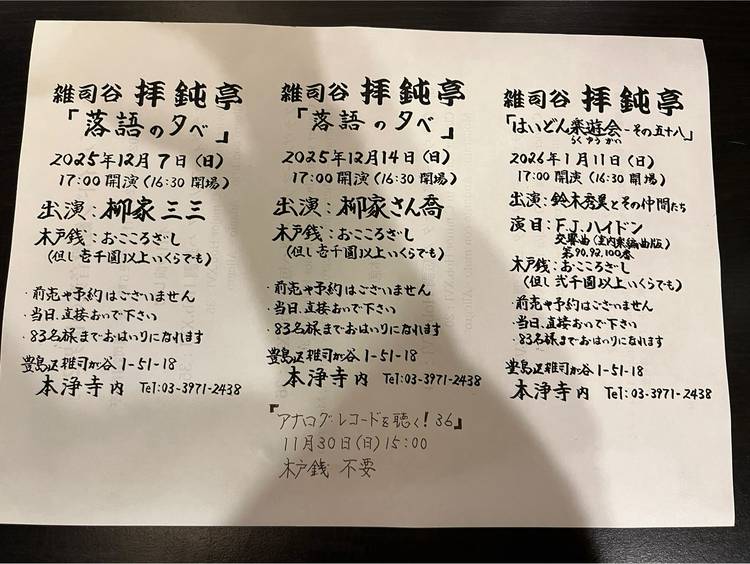 雑司谷 拝鈍亭
「落語の夕べ」
2025年12月7日(日)
17:00開演(16:30開場)
出演:柳家三三
木戸銭:おこころざし
(但し壱千圓以上いくらでも)
・前売や予約はございません
・当日、直接おいで下さい
・83名様までおはいりになれます
豊島区雑司が谷1-51-18
本浄寺内 Tel:03-3971-2438
雑司谷 拝鈍亭
「落語の夕べ」
2025年12月14日(日)
17:00開演(16:30開場)
出演:柳家さん喬
木戸銭:おこころざし
(但し壱千圓以上いくらでも)
・前売や予約はございません
・当日、直接おいで下さい
・83名様までおはいりになれます
豊島区雑司が谷1-51-18
本浄寺内 Tel:03-3971-2438
『アナログレコードを聴く!36』
11月30日(日)15:00
木戸銭 不要
雑司谷 拝鈍亭
「はいどん楽遊会-その五十八」
らくゆうかい
2026年1月11日(日)
17:00開演(16:30開場)
出演:鈴木秀美とその仲間たち
演目:F.J.ハイドン
交響曲(室内楽編曲版)
第90,92,100番
木戸銭:おこころざし
(但し弐千圓以上いくらでも)
・前売や予約はございません
・当日、直接おいで下さい
・83名様までおはいりになれます
豊島区雑司が谷1-51-18
本浄寺内 Tel:03-3971-2438